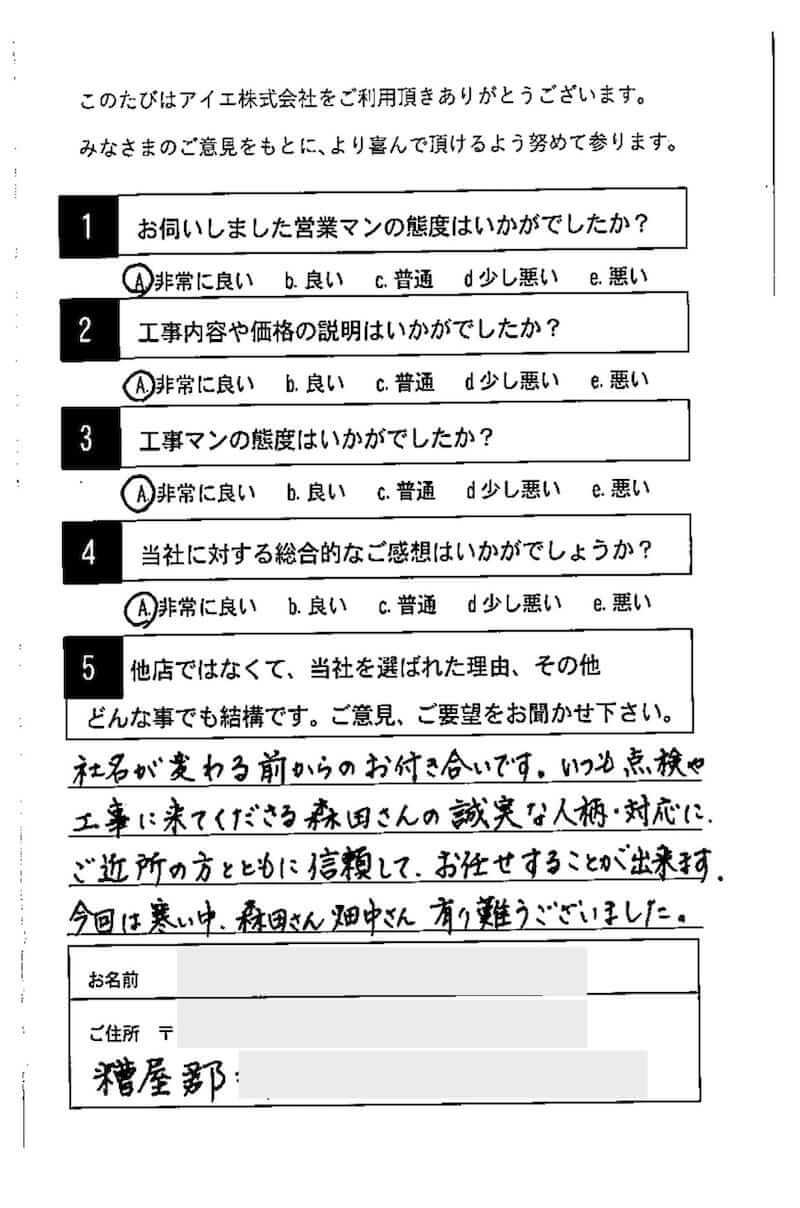 このたびはアイエ株式会社をご利用頂きありがとうございます。
みなさまのご意見をもとに、より喜んで頂けるよう努めて参ります。
1 お伺いしました営業マンの態度はいかがでしたか？
A 非常に良い b. 良い c. 普通 d 少し悪い e. 悪い
2 工事内容や価格の説明はいかがでしたか？
A. 非常に良い b. 良い c. 普通 d 少し悪い e. 悪い
3 工事マンの態度はいかがでしたか？
A. 非常に良い b. 良い c. 普通 d 少し悪い e. 悪い
4 当社に対する総合的なご感想はいかがでしょうか？
A. 非常に良い b. 良い c. 普通 d 少し悪い e. 悪い
5 他店ではなくて、当社を選ばれた理由、その他
どんな事でも結構です。ご意見、ご要望をお聞かせ下さい。
社名が変わる前からのお付き合いです。いつも点検や
工事に来てくださる森田さんの誠実な人柄・対応に、
ご近所の方とともに信頼して、お任せすることが出来ます。
今回は寒い中、森田さん畑中さん 有り難うございました。
お名前
ご住所 〒
糟屋郡